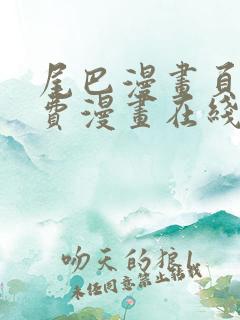 尾巴漫畫頁
費漫畫在綫
吻天的狼l
未经同意禁止转载